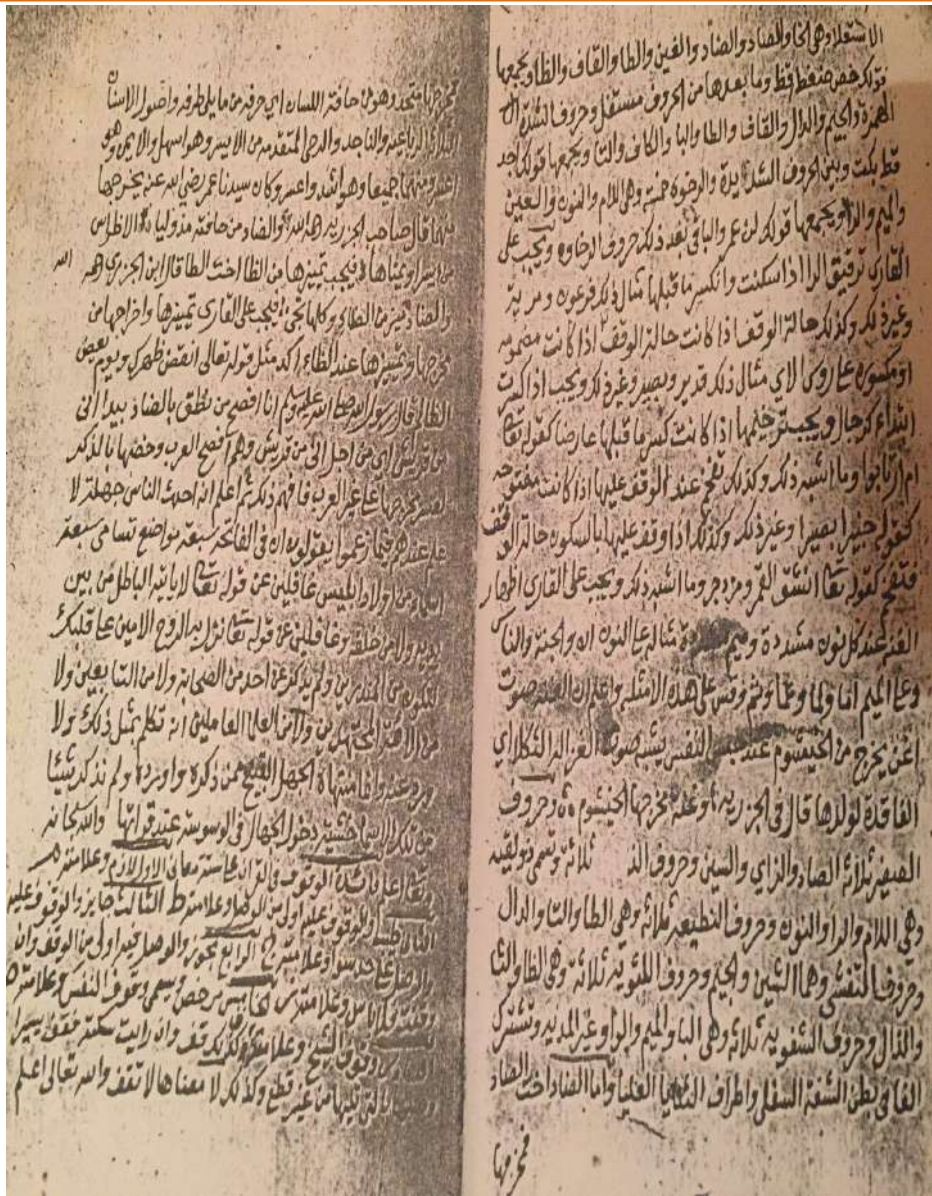 الاستعلا وهي الخا والصاد والضاد والغين والطا والقاف والظا ويجمعها
قولك خص ضغط قظ وما بعدها من الحروف مستفل وحروف الشدة
الهمزة والجيم والدال والقاف والطا والبا والكاف والتا ويجمعها قولك اجد
قط بكت وبين الحروف الشديدة والرخوة خمسة وهي اللام والنون والعين
والميم والرا ويجمعها قولك لن عمر والباقي بعد ذلك حروف الرخاوه ويجب على
القارى ترقيق الرا اذا سكنت وانكسر ما قبلها مثال ذلك فرعون ومريه
وغير ذلك وكذلك حالة الوقف اذا كانت حالة الوقف اذا كانت مضمومه
او مكسورة مثال ذلك قدير وبصير وغير ذلك ويجب اذا كسرت
ابتداء كرجال ويجب تفخيمها اذا كانت كسر ما قبلها عارضا كقوله تعا
ام ارتابوا وما اشبه ذلك وكذلك تفخم عند الوقف عليها اذا كانت مفتوحه
كقوله خبيرا بصيرا وغير ذلك وكذلك اذا وقف عليها بالسكون حالة الوقف
فتفخم كقوله تعا انشق القمر ومزدجر وما اشبه ذلك ويجب على القارى اظهار
الغنه عند كل نون مشددة وميم مشددة مثاله على النون ان والجنة والناس
وعلى الميم اما ولما وعما وثم وقس على هذه الامثله واعلم ان الغنه صوت
اغن يخرج من الخيشوم عند النفس يشبه صوت الغزاله الثكلا اي
الفاقدة لولدها قال في الجزريه وغنه مخرجها الخيشوم وحروف
الصفير ثلاثه الصاد والزاي والسين وحروف الذ ثلاثه وتسمى ذولقيه
وهي اللام والرا والنون وحروف النطعيه ثلاثه وهي الطا والتا والدال
وحروف التفشى وهما الشين والجيم وحروف اللثويه ثلاثه وهى الظا والثا
والذال وحروف الشفويه ثلاثه وهى البا والميم والواو غير المديه وتشترك
الفا في بطن الشفة السفلى واطراف الثنايا العليا واما الضاد اخت الصاد
فمخرجها
فمخرجها متحد وهو من حافة اللسان اي حرفه من ما يلي طرفه واصول الاسنان
الثلاثة الرباعيه والناجد والرحى المتقدمه من الايسر وهو اسهل والايمن وهو
اعسر ومنهما جميعا وهو اشد واعسر وكان سيدنا عمر رضى الله عنه يخرجها
منهما قال صاحب الجزريه والضاد من حافته اذ وليا الاضراس
من ايسر او يمناها فيجب تمييزها من الظا اخت الطا قال ابن الجزري رحمه الله
والضاد ميز من الظا وكلها تجى فيجب على القارى تمييزها واخراجها من
مخرجها وتمييزها عند الظاء اكد مثل قوله تعالى انقض ظهرك ويوم يعض
الظالم قال رسول الله صلى الله عليه وسلم انا افصح من نطق بالضاد بيد انى
من قريش اي من اجل انى من قريش وهم افصح العرب وخصها بالذكر
لعسر مخرجها على غير العرب فافهم ذلك ثم اعلم انه احدث الناس جهلة لا
علم عندهم زعموا بقولهم ان فى الفاتحة سبعة مواضع تسامى سبعة
اسماء من اولاد ابليس غافلين عن قوله تعا لا ياتيه الباطل من بين
يديه ولا من خلفه وغافلين عن قوله تعا نزل به الروح الامين على قلبك
لتكون من المنذرين ولم يذكر عن احد من الصحابة ولا من التابعين ولا
من الائمة المجتهدين ولا من العلما العاملين انه تكلم بمثل ذلك ولا
ورد عنه وانما منتهاه الجهل القبيح ممن ذكره واورده ولم نذكر شيئا
من تلك الاسما خشية دخول الجهال في الوسوسة عند قراتها والله سبحانه
وتعا اعلم الوقوف في القران على ستة معان الاول لازم وعلامته م
الثاني والوقوف عليه اولى من الوصل وعلامته ط الثالث جايز والوقوف عليه
والوصل على حد سوا وعلامته ج الرابع يجوز والوصل فيه اولى من الوقف وان
وقفت فلا باس وعلامته ز الخامس مرخص ويسمى وقوف النفس وعلامته ص
السادس وقوف الشيخ وعلامته قف وان رايت سكتة فقف يسيرا
بالتي تليها من غير قطع وكذلك لا معناها لا تقف والله تعالى اعلم